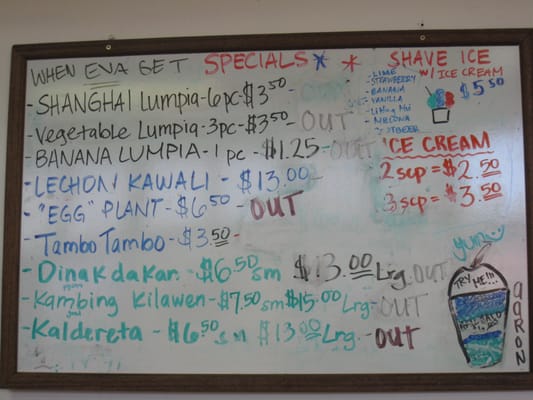 WHEN EVA GET SPECIALS * *
- SHANGHAI Lumpia - 6 pc - $3.50 -
- Vegetable Lumpia - 3pc - $3.50 - OUT
- BANANA LUMPIA - 1 pc - $1.25 - OUT
- LECHON KAWALI - $13.00 -
- "EGG" PLANT - $6.50 - OUT
- Tambo Tambo - $3.50 -
- Dinakdakan - $6.50 sm $13.00 Lrg OUT
- Kambing Kilawen - $7.50 sm $15.00 Lrg - OUT
- Kaldereta - $6.50 sm $13.00 Lrg - OUT
SHAVE ICE
w/ ICE CREAM
LIME
STRAWBERRY
BANANA
VANILLA
Li Hing Mui
ROOTBEER
$5.50
ICE CREAM
2 scp = $2.50
3 scp = $3.50
yum
TRY ME!!!
AARON